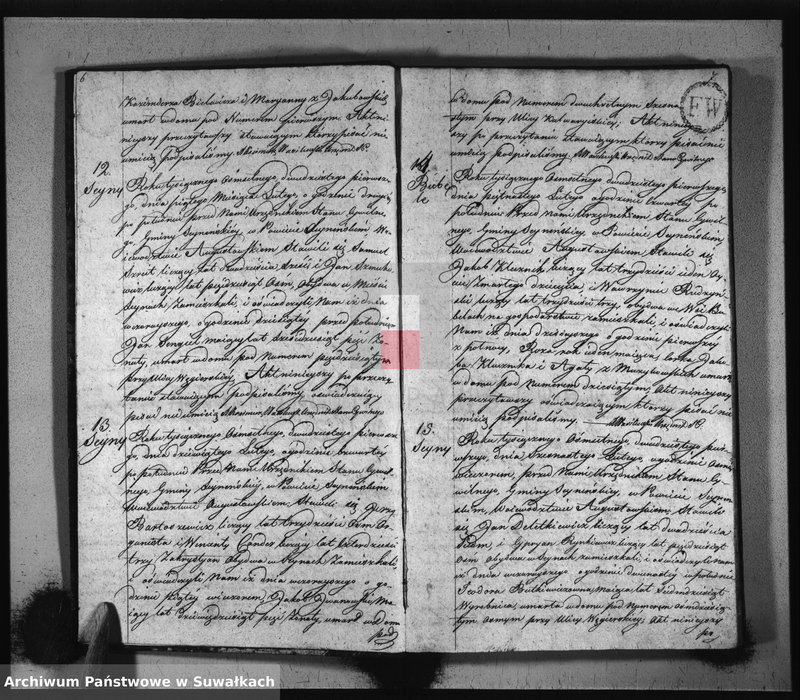 6
Kazimierza Bielawicza i Maryanny z Jakubowskich
umarł w domu pod Numerem pierwszym. Akt ni-
nieyszy przeczytawszy stawaiącym którzy pisać nie
umieią podpisaliśmy.
12.
Seyny
Roku tysiącznego Osmsetnego, dwudziestego pierwsze-
go, dnia piątego Miesiąca Lutego, o godzinie drugiey
po południu przed Nami Urzędnikiem Stanu Cywilne-
go, Gminy Seyneńskiey, w Powiecie Seyneńskim, Wo-
iewodztwie Augustowskiem Stawili się Samuel
liczący lat dwadzieścia sześć i Jan
liczący lat pięćdziesiąt Osm, obydwa w Mieście
Seynach Zamieszkali, i oświadczyli Nam iż dnia
wczorayszego, o godzinie dziesiątey przed południem
Jan Sengiel maiący lat dziewięćdziesiąt pięć Żo-
naty, umarł w domu pod Numerem pięćdziesiątym
przy Ulicy Węgierskiey. Akt ninieyszy po przeczy-
taniu stawaiącym podpisaliśmy, oświadczaiący
pisać nie umieią
13.
Seyny
Roku tysiącznego Osmsetnego, dwudziestego pierwsze-
go, dnia dziewiątego Lutego, o godzinie czwartey
po południu Przed Nami Urzędnikiem Stanu Cywil-
nego, Gminy Seyneńskiey, w Powiecie Seyneńskim
Woiewodztwie Augustowskiem, Stawili się Jerzy
Bartoszewicz liczący lat trzydzieści Osm Or-
ganista i Wincenty Condor liczący lat czterdzieści
trzy Zakrystyan Obydwa w Seynach Zamieszkali
oświadczyli Nam iż dnia wczorayszego o go-
dzinie piątey wieczorem, Jakub Iwanowski Ma-
iący lat dziewięćdziesiąt pięć Żonaty, umarł w domu
pod
7
FW
w domu pod Numerem dwuchsetnym Szesna-
stym przy Ulicy Kalwaryiskiey. Akt nineyszy
po przeczytaniu stawaiącym którzy pisać nie
umieią podpisaliśmy.
14
Bube-
le
Roku tysiącznego Osmsetnego dwudziestego pierwszego,
dnia piętnastego Lutego o godzinie czwartey po
południu Przed Nami Urzędnikiem Stanu Cywil-
nego, Gminy Seyneńskiey, w Powiecie Seyneńskim,
Woiewodztwie Augustowskiem Stawili się
Jakub Kluznik liczący lat trzydzieści ieden Oy-
ciec Zmarłego dziecięcia, i Wawrzyniec
liczący lat trzydzieści trzy, obydwa we Wsi Bu-
belach na gospodarstwie zamieszkali, i oświadczyli
Nam iż dnia dzisieyszego o godzinie pierwszey
z północy, Roza rok ieden maiąca, Corka Jaku-
ba Kluznika i Agaty z umarła
w domu pod Numerem dziesiątym. Akt ninieyszy
przeczytawszy oświadczaiącym którzy pisać nie
umieią podpisaliśmy.
15.
Seyny
Roku tysiącznego Osmsetnego, dwudziestego pier-
wszego, dnia Szesnastego Lutego, o godzinie Osmey
wieczorem, przed Nami Urzędnikiem Stanu Cy-
wilnego, Gminy Seyneńskiey, w Powiecie Seyneń-
skim, Woiewodztwie Augustowskiem, Stawili
się Jan liczący lat dwadzieścia
i Cypryan Rynkiewicz liczący lat pięćdziesiąt
Osm obydwa w Seynach zamieszkali, i oświadczyli Nam
iż dnia wczorayszego o godzinie dwunastey w południe
Teodora Butkiewiczowna, Maiąca lat Siedmdziesiąt
Wyrobnica, umarła w domu pod Numerem Osmdziesią-
tym Osmym przy Ulicy Węgierskiey, Akt ninieyszy
po
Archiwum Państwowe w Suwałkach